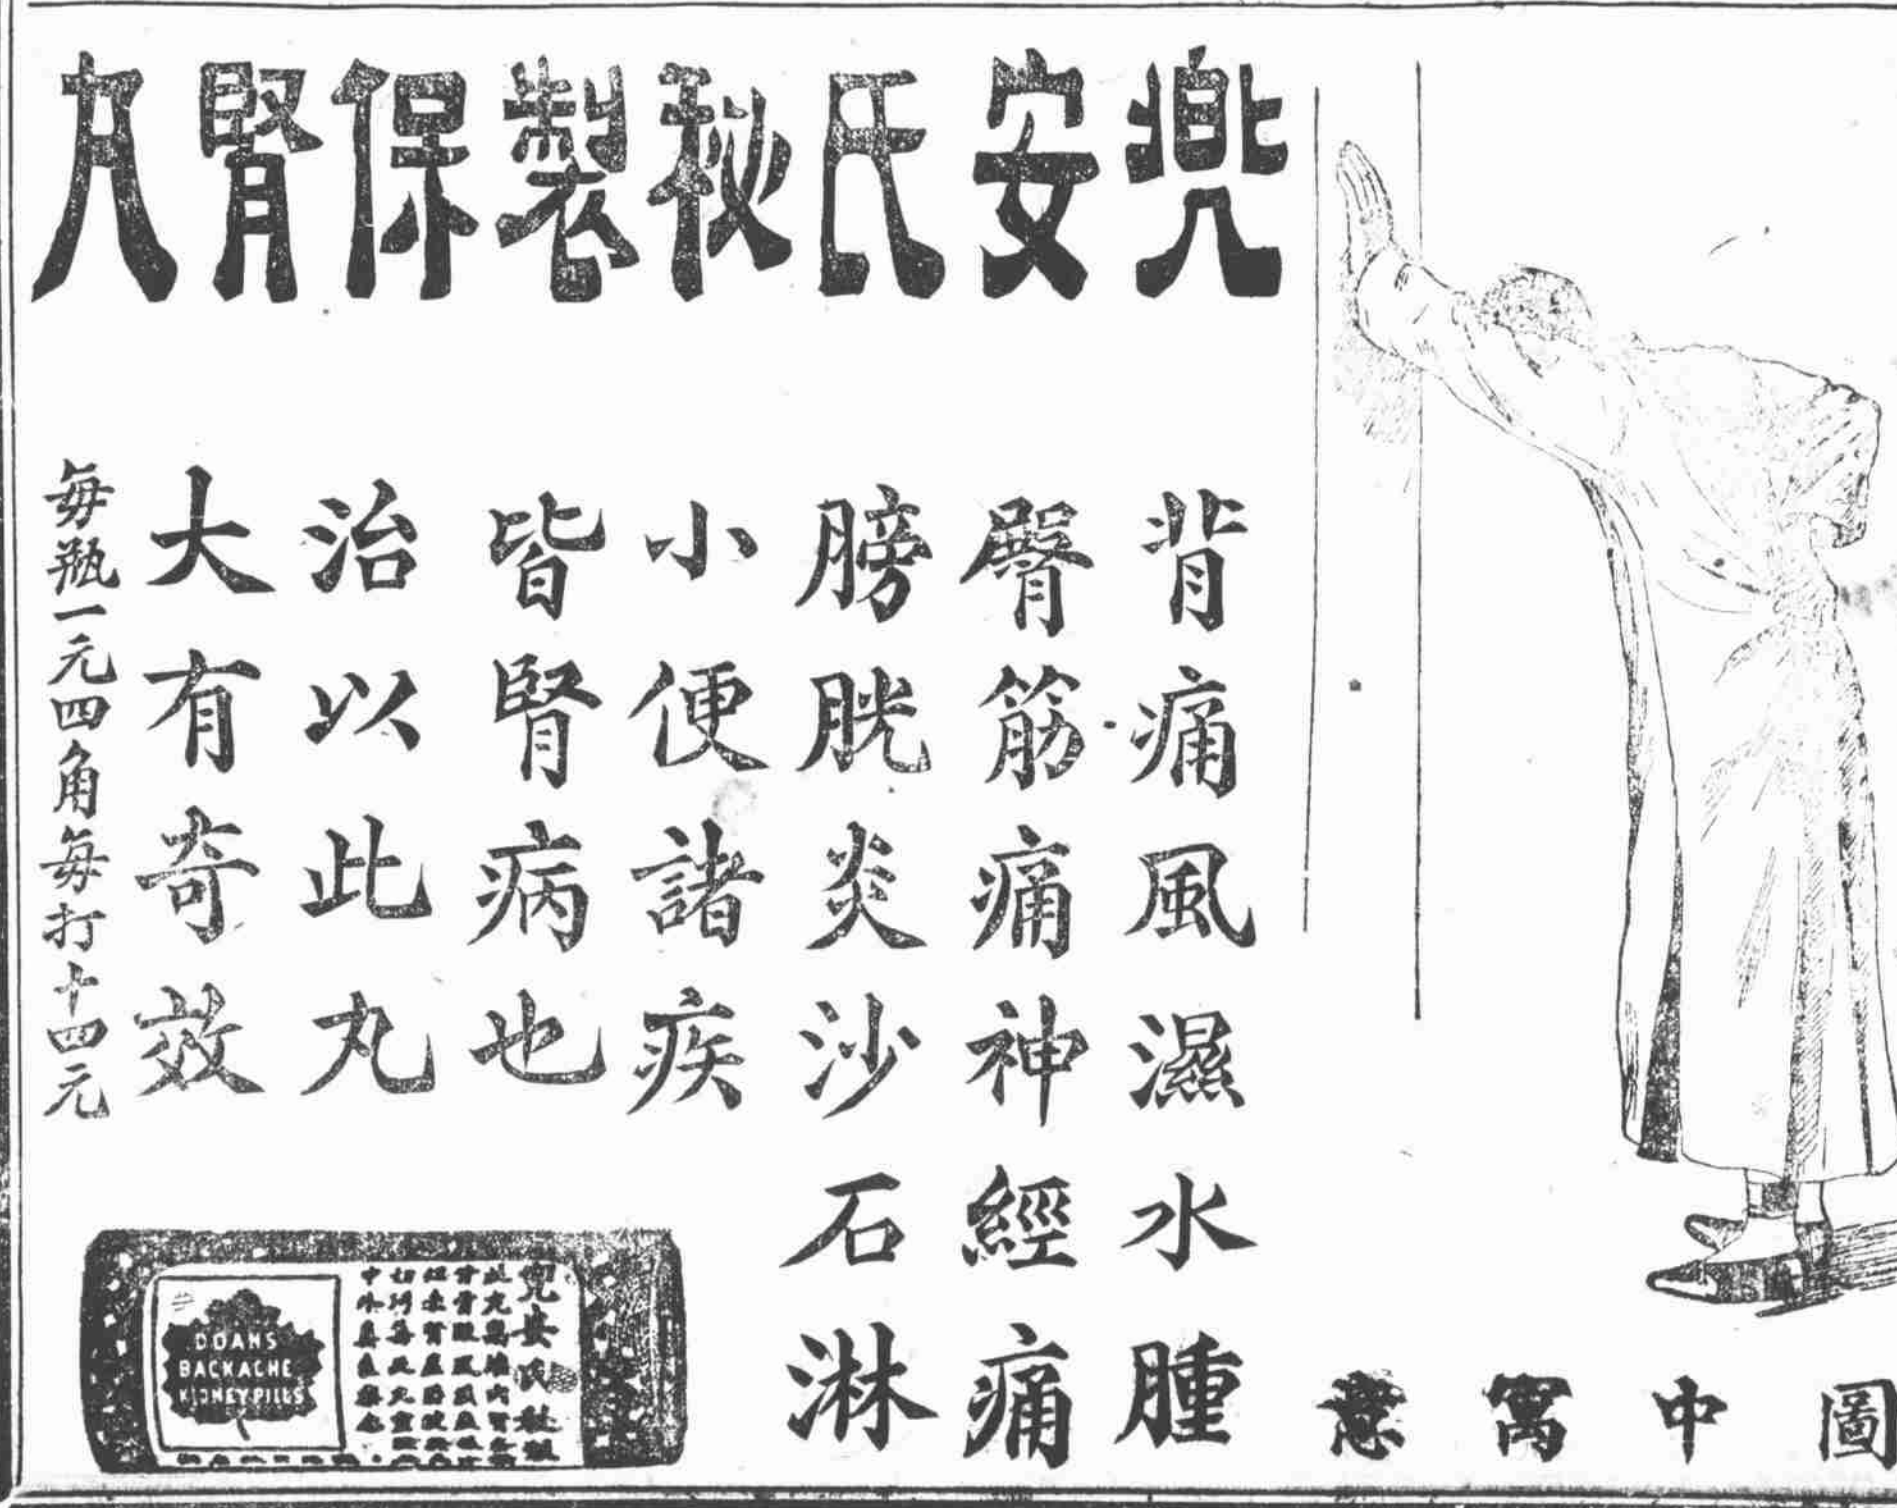 兜安氏秘製保腎丸
背痛風濕水腫
臀筋痛神經痛
膀胱炎沙石淋
小便諸疾
皆腎病也
治以此丸
大有奇效
每瓶一元四角每打十四元
圖中寓意
兜安氏秘製
DOANS
BACKACHE
KIDNEY PILLS